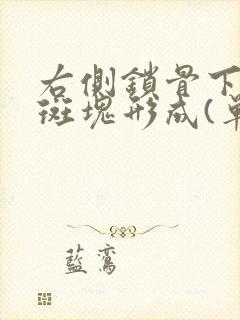 右側鎖骨下
斑塊形成(單
藍鸞